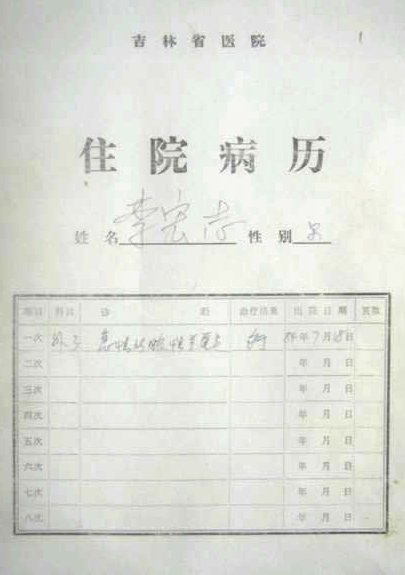 吉林省医院
住院病历
姓名 李宏志 性别 男
项目 科别 诊 断 治疗结果 出院日期 页数
一次 外三 急性化脓性 84年7月18日
二次 年 月 日
三次 年 月 日
四次 年 月 日
五次 年 月 日
六次 年 月 日
七次 年 月 日
八次 年 月 日